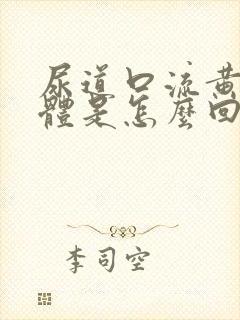 尿道口流黄
體是怎麼回
李司空